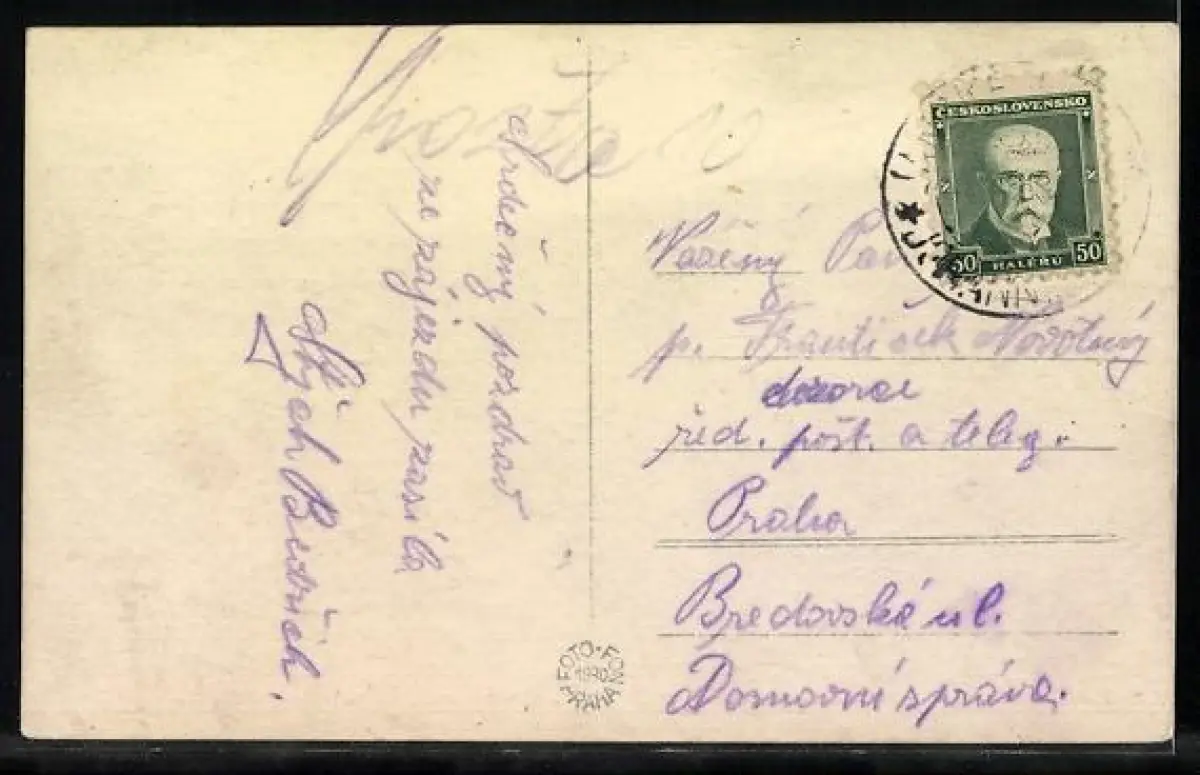 Srdečný pozdrav
ze zájezdu zasílá
Bedřich.
Vážený Pan
p. František Novotný
dozorce
řed. pošt. a teleg.
Praha
Bredovská ul.
Domovní správa.
ČESKOSLOVENSKO
50 HALÉŘŮ 50
FOTO-FON
1930
PRAHA